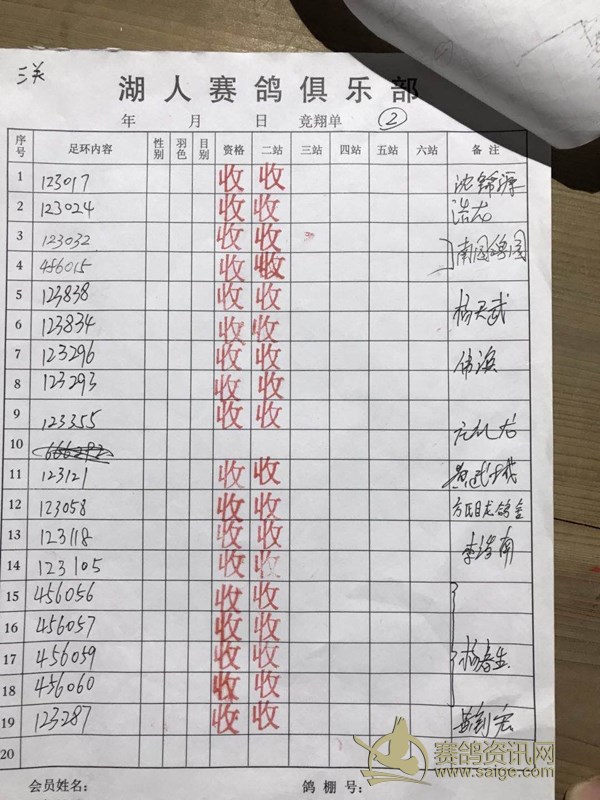 三关
湖人赛鸽俱乐部
年 月 日 竞翔单 ②
序号 足环内容 性别 羽色 目别 资格 二站 三站 四站 五站 六站 备注
1 123017 收 收 沈锦源
2 123024 收 收 浩龙
3 123032 收 收
4 486015 收 收 南国鸽园
5 123838 收 收 杨天武
6 123834 收 收
7 123296 收 收 伟滨
8 123293 收 收
9 123355 收 收
10 666292
11 123121 收 收
12 123058 收 收 方氏日龙鸽舍
13 123118 收 收 李浩南
14 123105 收 收
15 456056 收 收
16 456057 收 收
17 456059 收 收 杨春生
18 456060 收 收
19 123287 收 收
20
会员姓名: 鸽棚号:
赛鸽资讯网
www.saige.com